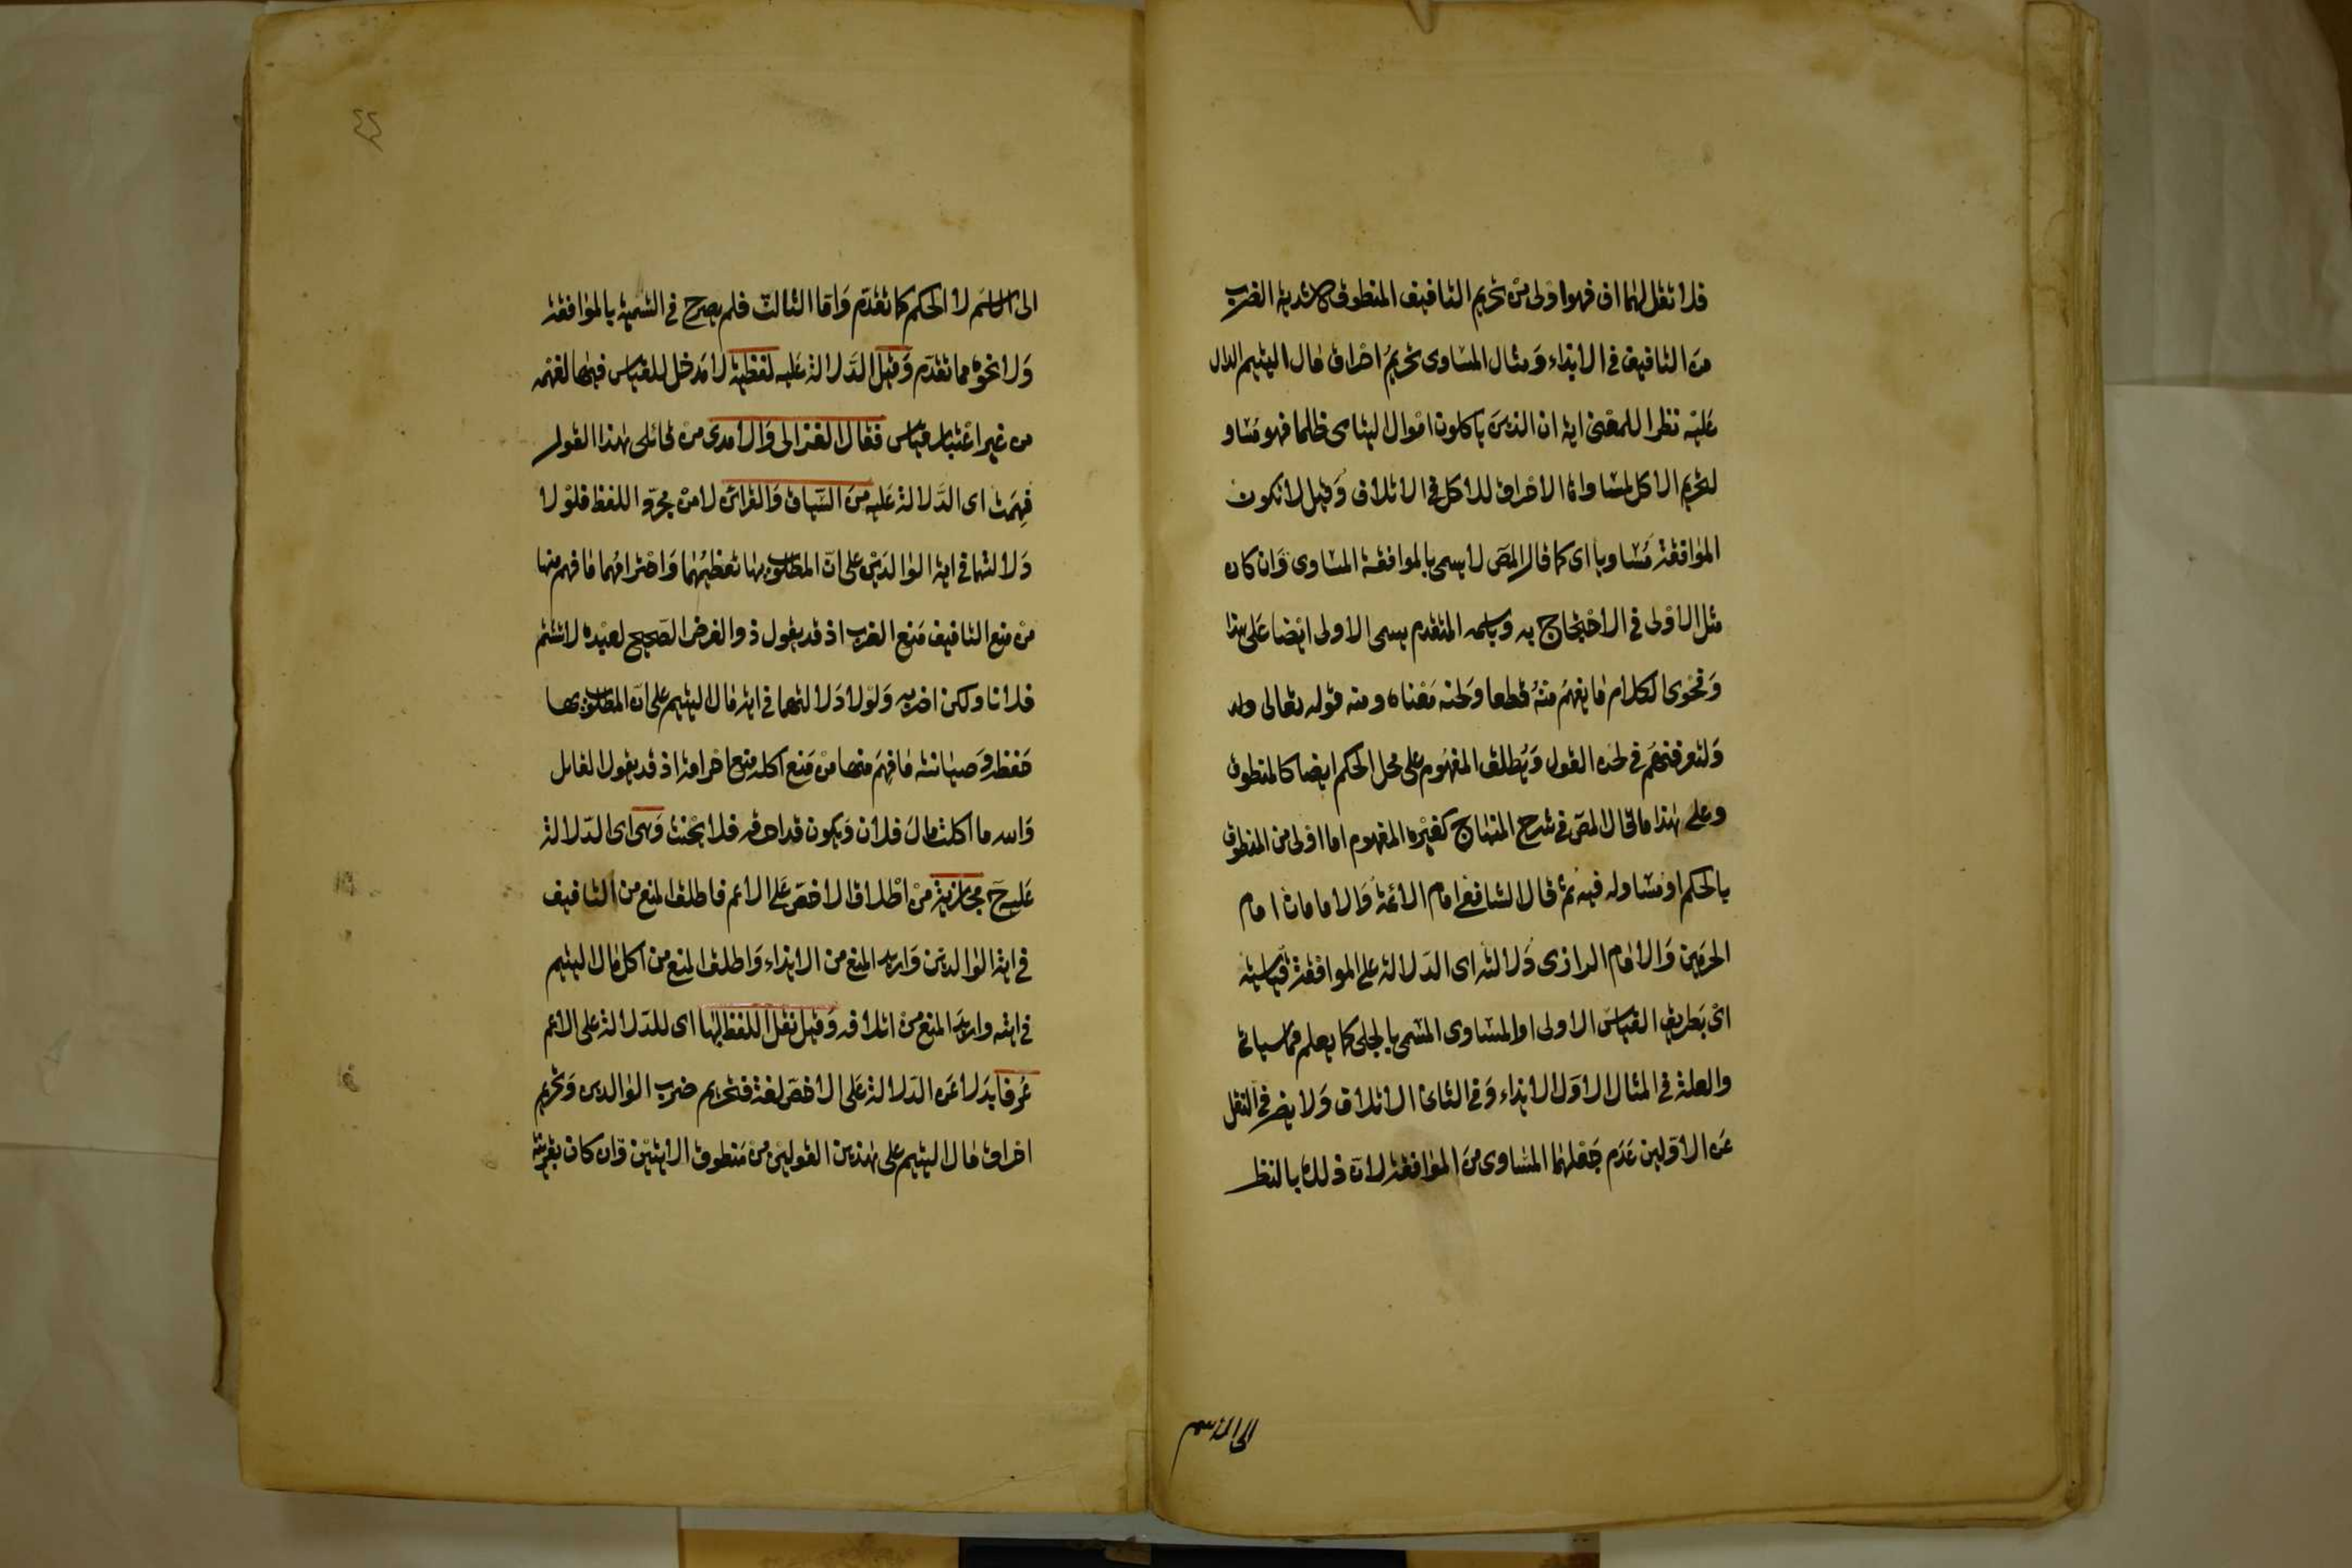 فلا تقل لهما اف فهو اولى من تحريم التافيف المنطوق لاشدية الضرب
من التافيف في الايذاء ومثال المساوى تحريم احراق مال اليتيم الدال
عليه نظرا للمعنى اية ان الذين ياكلون اموال اليتامى ظلما فهو مساو
لتحريم الاكل لمساواة الاحراق للاكل في الاتلاف وقيل لا تكون
الموافقة مساويا اى كما قال المص لا يسمى بالموافقة المساوى وان كان
مثل الاولى في الاحتجاج به وباسمه المتقدم يسمى الاولى ايضا على هذا
وفحوى الكلام ما يفهم منه قطعا ولحنه معناه ومنه قوله تعالى
ولتعرفنهم في لحن القول ويطلق المفهوم على محل الحكم ايضا كالمنطوق
وعلى هذا ما قال المص في شرح المنهاج كغيره المفهوم اما اولى من المنطوق
بالحكم او مساو له فيه ثم قال الشافعى امام الائمة والامامان امام
الحرمين والامام الرازى دلالته اى الدلالة على الموافقة قياسية
اى بطريق القياس الاولى او المساوى المسمى بالجلى كما يعلم مما سياتى
والعلة في المثال الاول الايذاء وفي الثانى الاتلاف ولا يضر في النقل
عن الاولين عدم جعلهما المساوى من الموافقة لان ذلك بالنظر
الى الاسم
الى الاسم لا الحكم كما تقدم واما الثالث فلم يصرح في التسمية بالموافقة
ولا نحوه مما تقدم وقيل الدلالة عليه لفظية لا مدخل للقياس فيها لفهمه
من غير اعتبار قياس فقال الغزالى والامدى من قائلى هذا القول
فهمت اى الدلالة عليه من السياق والقرائن لا من مجرد اللفظ فلولا
دلالتهما في اية الوالدين على ان المطلوب بها تعظيمهما واحترامهما ما فهم منها
من منع التافيف منع الضرب اذ قد يقول ذو الغرض الصحيح لعبده لا تشتم
فلانا ولكن اضربه ولولا دلالتهما في اية مال اليتيم على ان المطلوب بها
حفظه وصيانته ما فهم منها من منع اكله منع احراقه اذ قد يقول القائل
والله ما اكلت مال فلان ويكون قد احرقه فلا يحنث وهى اى الدلالة
عليه ح مجازية من اطلاق الاخص على الاعم فاطلق المنع من التافيف
في اية الوالدين واريد المنع من الايذاء واطلق المنع من اكل مال اليتيم
في ايته واريد المنع من اتلافه وقيل نقل اللفظ لها اى للدلالة على الاعم
عرفا بدلا عن الدلالة على الاخص لغة فتحريم ضرب الوالدين وتحريم
احراق مال اليتيم على هذين القولين من منطوق الايتين وان كان بقرينة